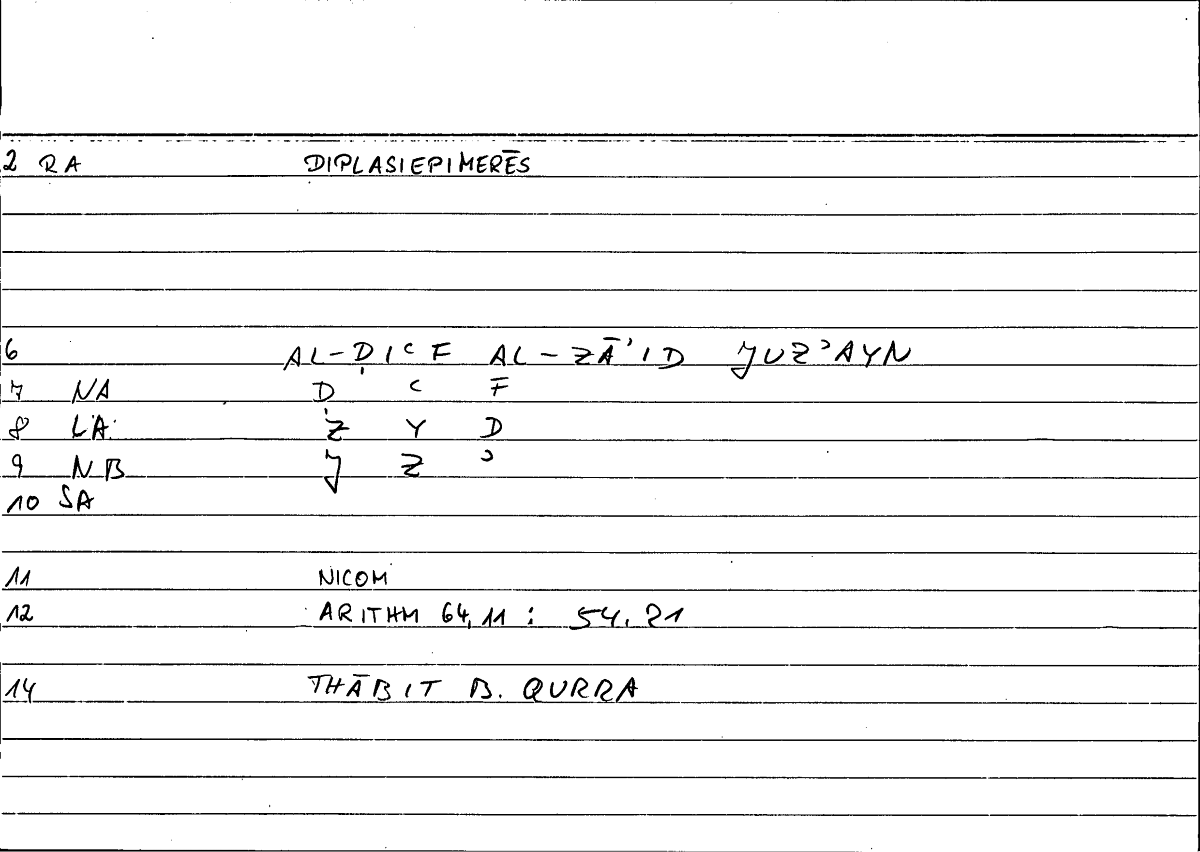 2 RA DIPLASIEPIMERĒS
6 AL-ḌIʿF AL-ZĀʾID JUZʾAYN
7 NA Ḍ ʿ F
8 LA Z Y D
9 NB J Z ʾ
10 SA
11 NICOM
12 ARITHM 64,11 : 54.21
14 THĀBIT B. QURRA